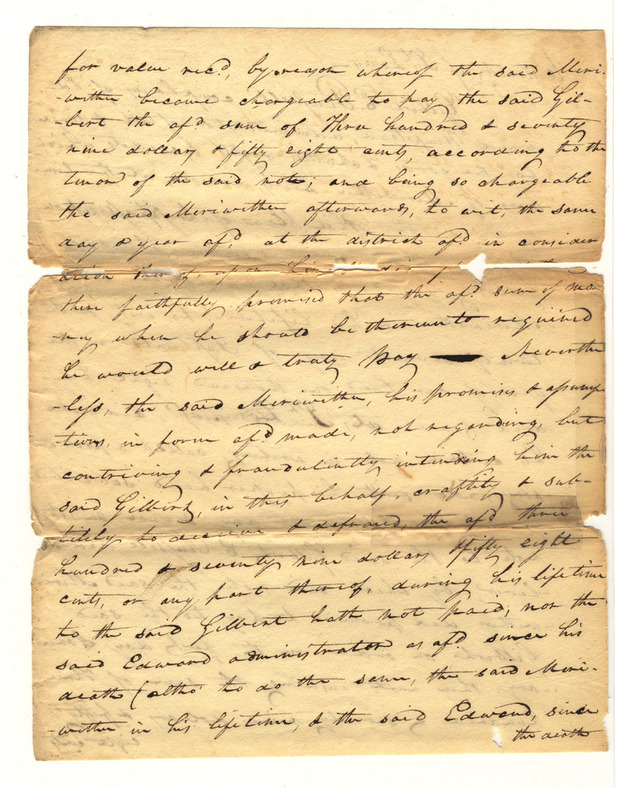 for value rec.d, by reason whereof the said Meri-
-wether became chargeable to pay the said Gil-
-bert the af.d sum of Three hundred & seventy
nine dollars & fifty eight cents, according to the
tenor of the said note; and being so chargeable
the said Meriwether afterwards, to wit, the same
day & year af.d, at the district af.d in consider
ation thereof, upon him
there faithfully promised that the af.d sum of mo
ney when he should be thereunto required
he would well & truly pay — Neverthe
-less, the said Meriwether, his promises & assump
-tions, in form af.d made, not regarding, but
contriving & fraudulently intending him the
said Gilbert, in this behalf, craftily & sub-
tilely to deceive & defraud, the af.d three
hundred & seventy nine dollars & fifty eight
cents, or any part thereof, during his lifetime
to the said Gilbert hath not paid, nor the
said Edward administrator as af.d since his
death (altho' to do the same, the said Meri-
-wether in his lifetime, & the said Edward, since
the death